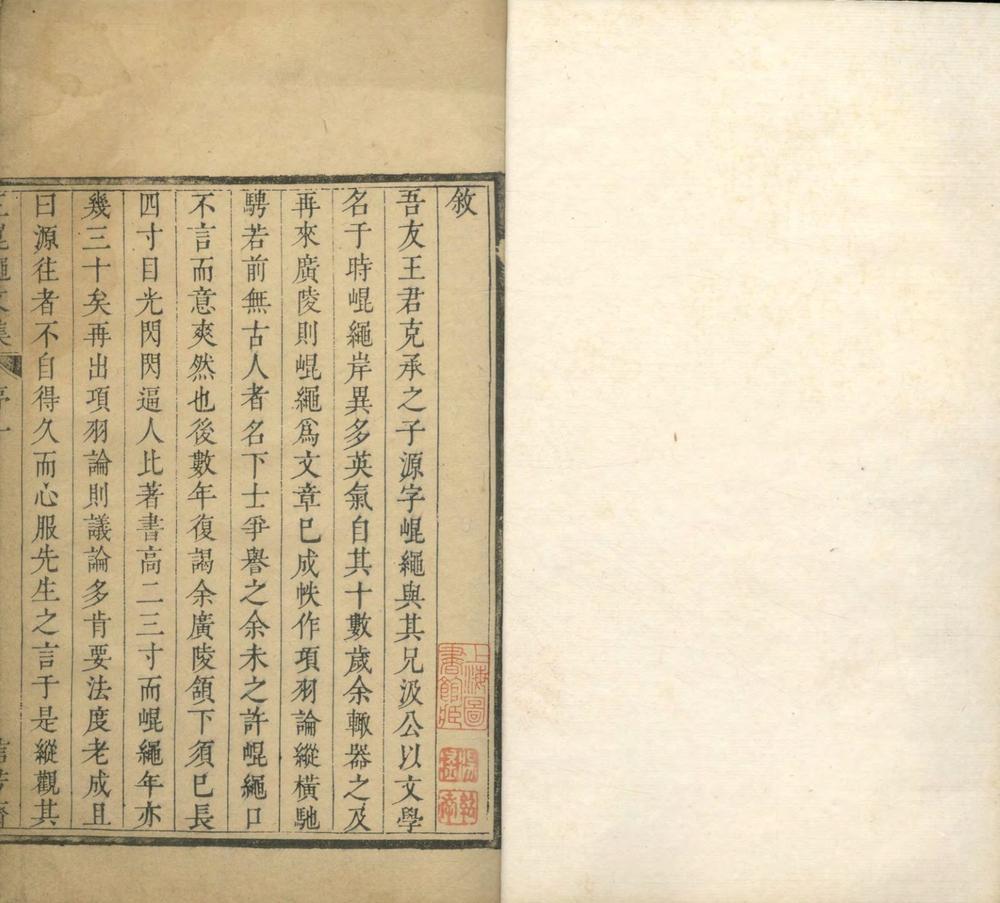 敘
吾友王君克承之子源字崐繩與其兄汲公以文學
名于時崐繩岸異多英氣自其十數歲余輙器之及
再來廣陵則崐繩爲文章已成帙作項羽論縱横馳
騁若前無古人者名下士爭譽之余未之許崐繩口
不言而意爽然也後數年復謁余廣陵頷下須已長
四寸目光閃閃逼人比著書高二三寸而崐繩年亦
幾三十矣再出項羽論則議論多肯要法度老成且
曰源往者不自得久而心服先生之言于是縱觀其
上海圖
書館臧